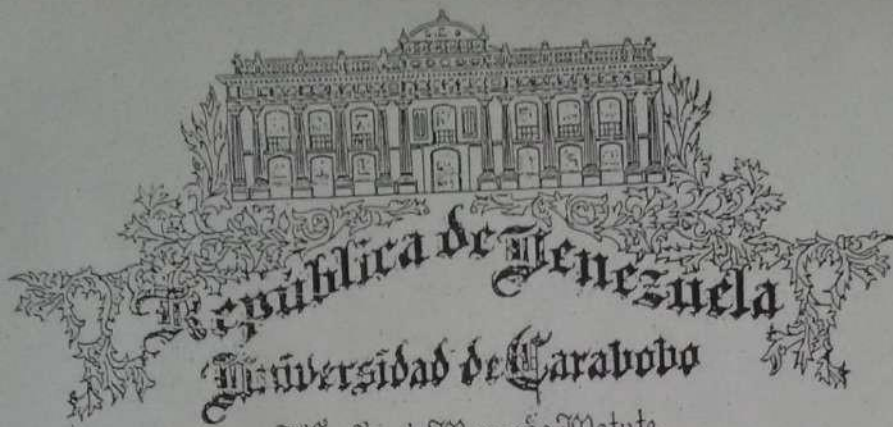 República de Venezuela
Universidad de Carabobo
Matute